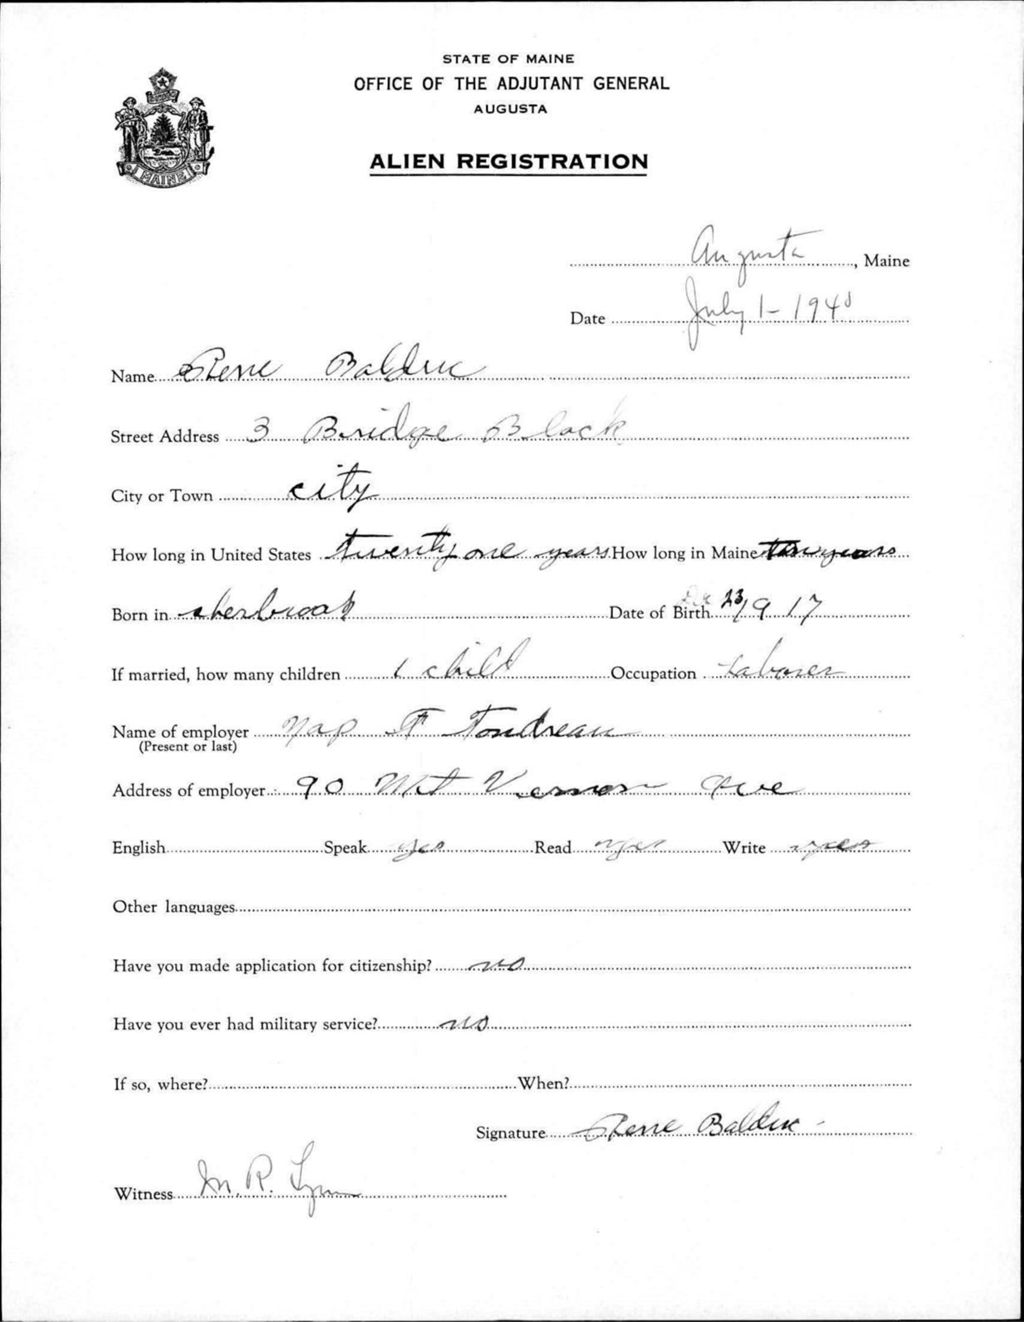 STATE OF MAINE
OFFICE OF THE ADJUTANT GENERAL
AUGUSTA
ALIEN REGISTRATION
MAINE
Augusta, Maine
Date July 1 - 1940
Name Rene Balduc
Street Address 3 Bridge Block
City or Town city
How long in United States twenty one years How long in Maine ten years
Born in sherbrook Date of Birth 23/9 17
If married, how many children 1 child Occupation Laborer
Name of employer Nap F Tondreau
(Present or last)
Address of employer 90 Mt Vernon Ave
English Speak yes Read yes Write yes
Other languages
Have you made application for citizenship? no
Have you ever had military service? no
If so, where? When?
Signature Rene Balduc
Witness M. R. Lynn